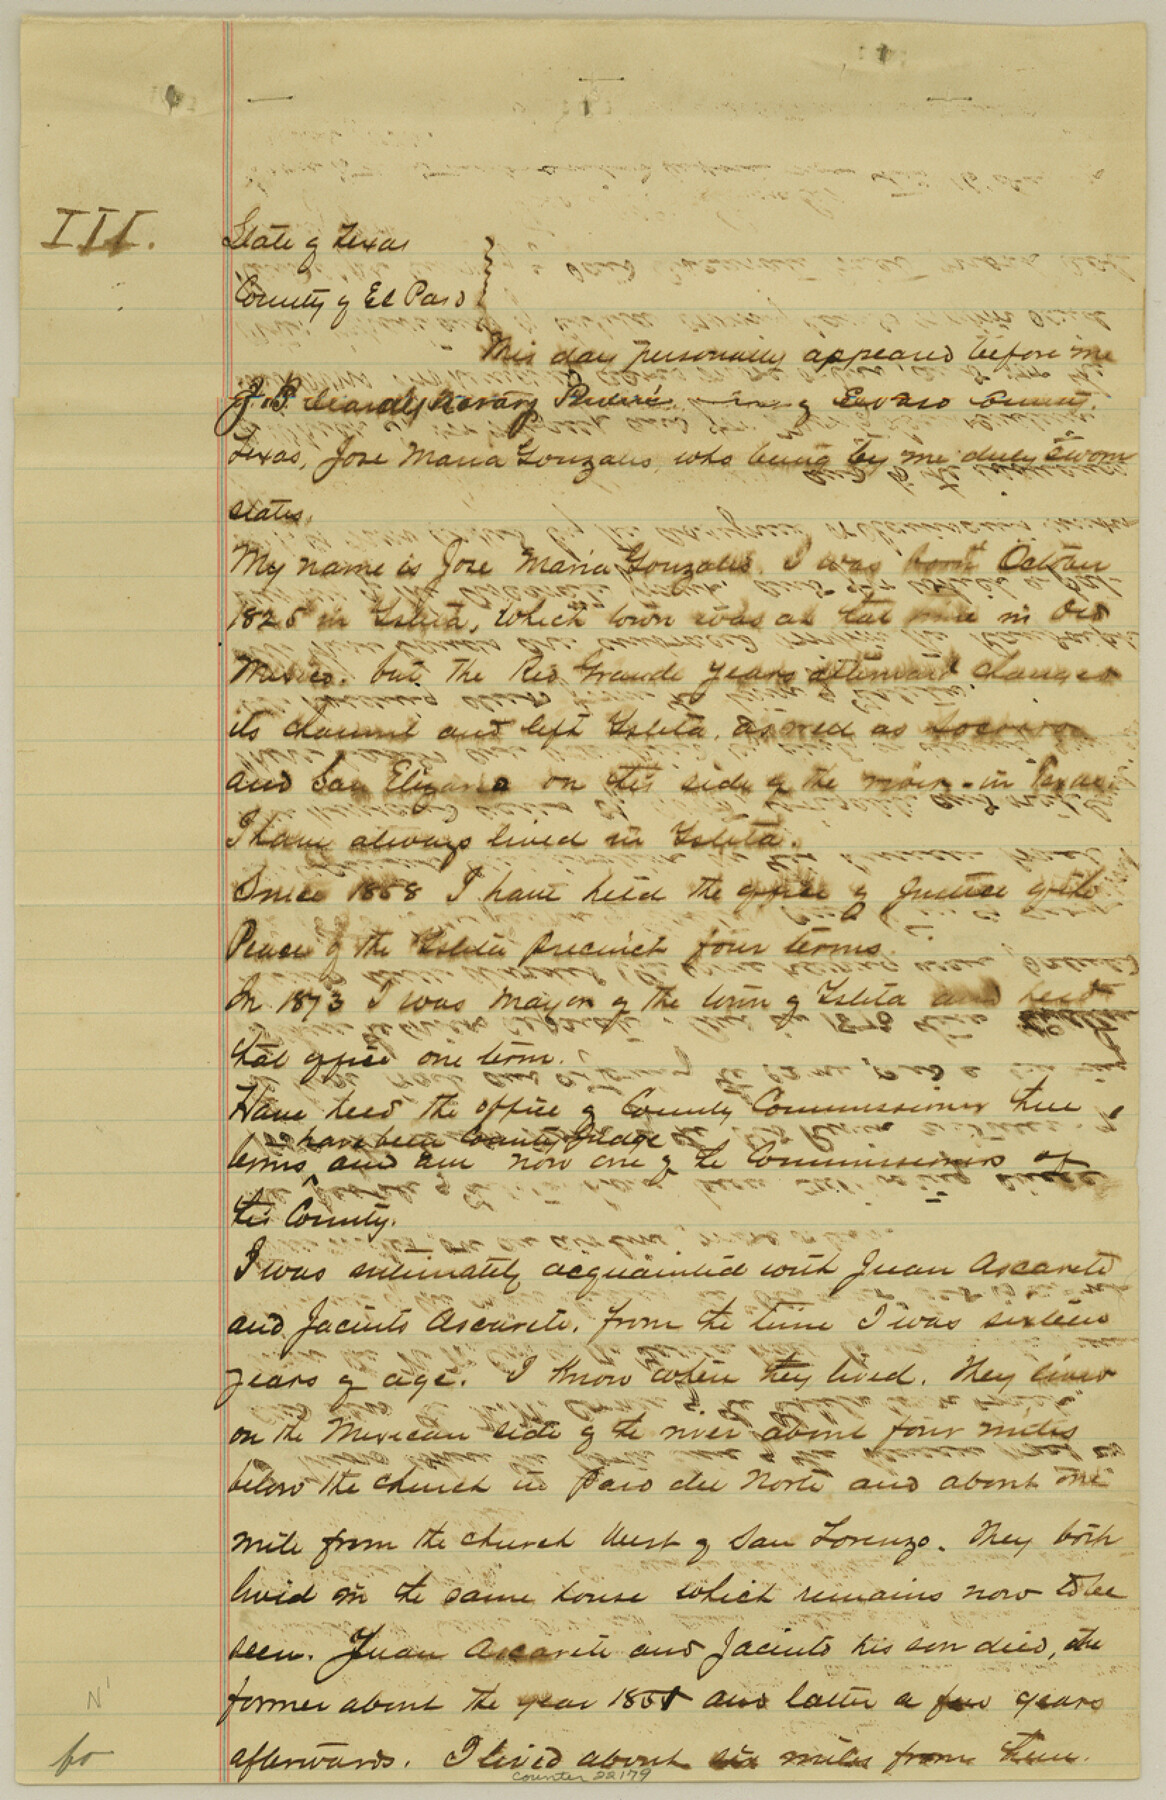 III.
State of Texas
County of El Paso
This day personally appeared before me
Notary Public of El Paso County
Texas, Jose Maria Gonzales, who being by me duly sworn
states,
My name is Jose Maria Gonzales. I was born October
1825 in Ysleta, which town was at that time in Old
Mexico. but the Rio Grande years afterward changed
its channel and left Ysleta, as well as Socorro
and San Elizario on this side of the river - in Texas
I have always lived in Ysleta.
Since 1858 I have held the office of Justice of the
Peace of the Ysleta Precinct four terms.
In 1873 I was Mayor of the town of Ysleta and held
that office one term.
Have held the office of County Commissioner three
have been County Judge
terms and am now one of the Commissioners of
this County.
I was intimately acquainted with Juan Ascarete
and Jacinto Ascarete. from the time I was sixteen
years of age. I know where they lived. They lived
on the Mexican side of the river about four miles
below the church in Paso del Norte and about one
mile from the church West of San Lorenzo. They both
lived in the same house which remains now to be
seen. Juan Ascarete and Jacinto his son died, the
former about the year 1855 and latter a few years
afterwards. I lived about six miles from them.
counter 22179